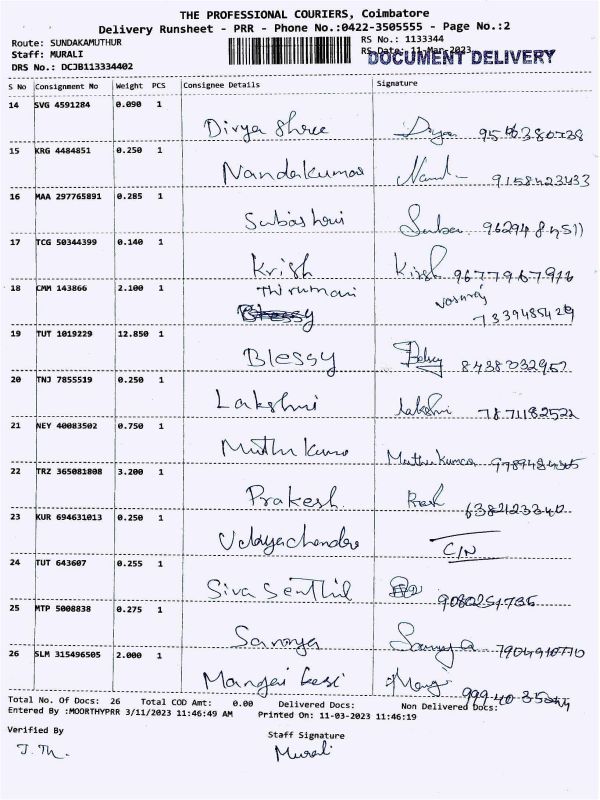 THE PROFESSIONAL COURIERS, Coimbatore
Delivery Runsheet - PRR - Phone No.:0422-3505555 - Page No.:2
Route: SUNDAKAMUTHUR
RS No.: 1133344
Staff: MURALI
RS Date: 11-Mar-2023
DOCUMENT DELIVERY
DRS No.: DCJB113334402
S No Consignment No Weight PCS Consignee Details Signature
14 SVG 4591284 0.090 1
Divya Shree Divya
15 KRG 4484851 0.250 1
Nandakumar Nand 9158423433
16 MAA 297765891 0.285 1
Subashini Suba
17 TCG 50344399 0.140 1
Krish Krish 9677967916
18 CMM 143866 2.100 1
Thirumani
Blessy 7339485429
19 TUT 1019229 12.850 1
Blessy 8438032957
20 TNJ 7855519 0.250 1
Lakshmi Lakshmi 7871182522
21 NEY 40083502 0.750 1
Muthu Kumar Muthu Kumar
22 TRZ 365081808 3.200 1
Prakesh 6382123340
23 KUR 694631013 0.250 1
C/N
24 TUT 643607 0.255 1
Siva Senthil 9080251735
25 MTP 5008838 0.275 1
Saranya Saranya 7904910770
26 SLM 315496505 2.000 1
Mangai
Total No. Of Docs: 26 Total COD Amt: 0.00 Delivered Docs: Non Delivered Docs:
Entered By :MOORTHYPRR 3/11/2023 11:46:49 AM Printed On: 11-03-2023 11:46:19
Verified By
Staff Signature
Murali